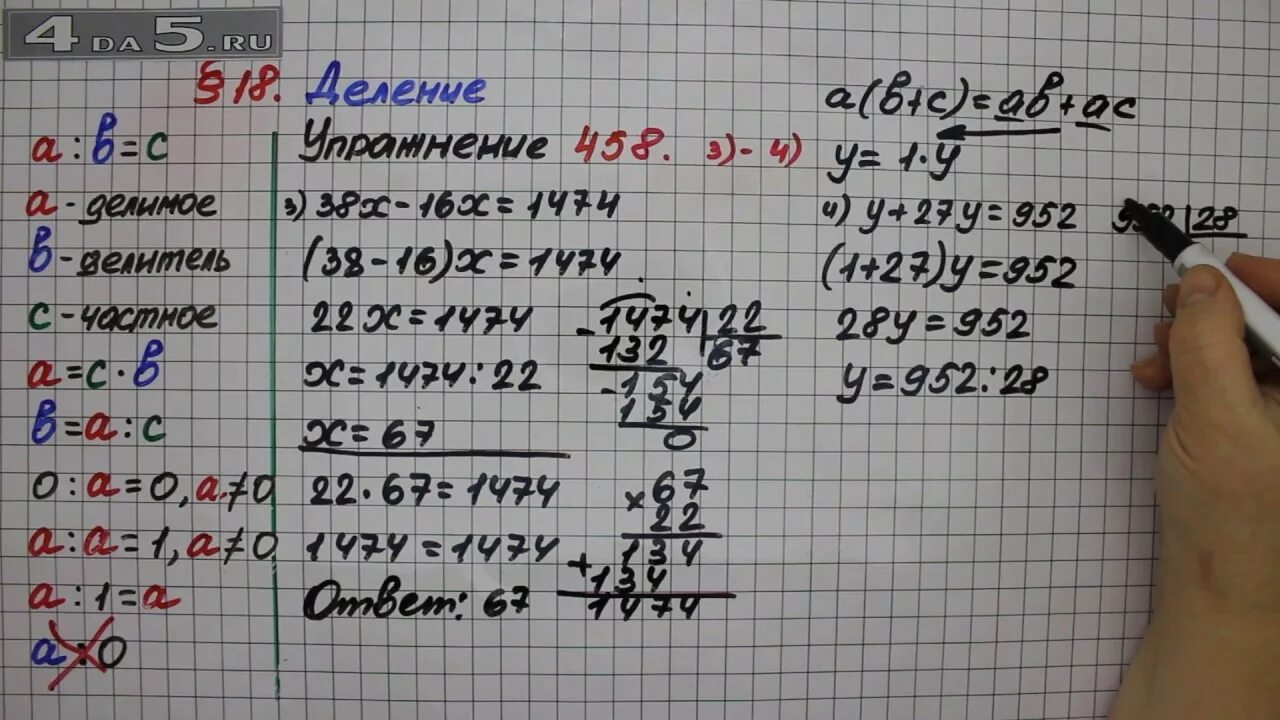 4DA5.RU
§18. Деление
a : в = с
a - делимое
в - делитель
с - частное
a = с · в
в = a : с
0 : a = 0, a ≠ 0
a : a = 1, a ≠ 0
a : 1 = a
a : 0
Упражнение 458. 3) - 4)
3) 38x - 16x = 1474
(38 - 16)x = 1474
22x = 1474
x = 1474 : 22
x = 67
22 · 67 = 1474
1474 = 1474
Ответ: 67
- 1474 | 22
132 67
- 154
154
0
× 67
22
+ 134
134
1474
a(в + с) = aв + aс
y = 1 · y
4) y + 27y = 952
(1 + 27)y = 952
28y = 952
y = 952 : 28
952 | 28